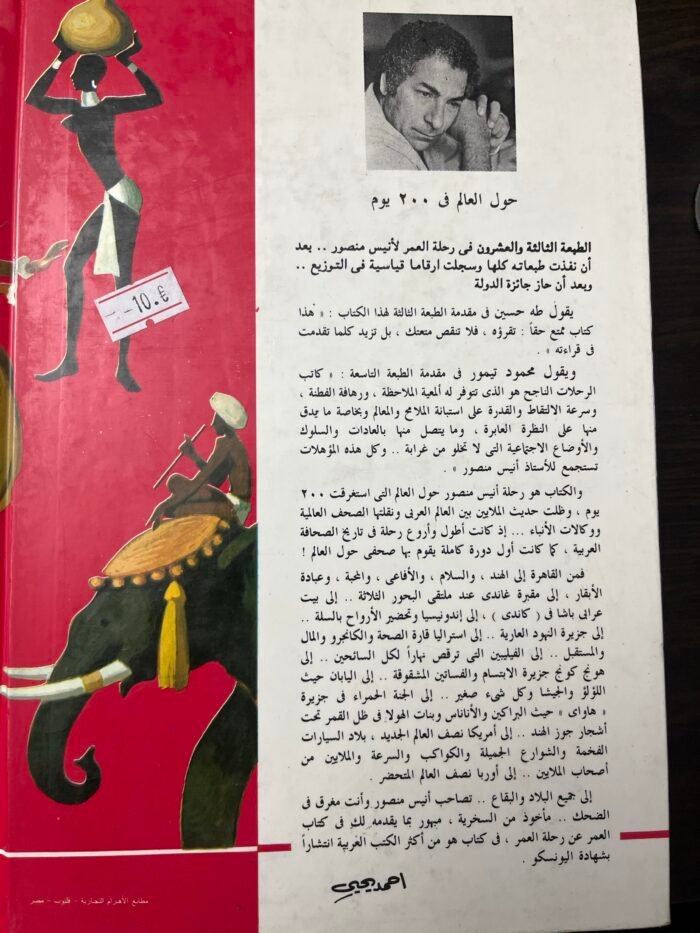 حول العالم فى ٢٠٠ يوم
الطبعة الثالثة والعشرون فى رحلة العمر لأنيس منصور .. بعد
أن نفذت طبعاته كلها وسجلت ارقاما قياسية فى التوزيع ..
وبعد أن حاز جائزة الدولة
يقول طه حسين فى مقدمة الطبعة الثالثة لهذا الكتاب : « هذا
كتاب ممتع حقاً : تقرؤه ، فلا تنقص متعتك ، بل تزيد كلما تقدمت
فى قراءته » .
ويقول محمود تيمور فى مقدمة الطبعة التاسعة : « كاتب
الرحلات الناجح هو الذى تتوفر له ألمعية الملاحظة ، ورهافة الفطنة ،
وسرعة الالتقاط والقدرة على استبانة الملامح والمعالم وبخاصة ما يدق
منها على النظرة العابرة ، وما يتصل منها بالعادات والسلوك
والأوضاع الاجتماعية التى لا تخلو من غرابة .. وكل هذه المؤهلات
تستجمع للأستاذ أنيس منصور » .
والكتاب هو رحلة أنيس منصور حول العالم التى استغرقت ٢٠٠
يوم ، وظلت حديث الملايين بين العالم العربى ونقلتها الصحف العالمية
ووكالات الأنباء ... إذ كانت أطول وأروع رحلة فى تاريخ الصحافة
العربية ، كما كانت أول دورة كاملة يقوم بها صحفى حول العالم !
فمن القاهرة إلى الهند ، والسلام ، والأفاعى ، والمحبة ، وعبادة
الأبقار ، إلى مقبرة غاندى عند ملتقى البحور الثلاثة .. إلى بيت
عرابى باشا فى ( كاندى ) ، إلى إندونيسيا وتحضير الأرواح بالسلة ..
إلى جزيرة النهود العارية .. إلى استراليا قارة الصحة والكانجرو والمال
والمستقبل .. إلى الفيليبين التى ترقص نهاراً لكل السائحين .. إلى
هونج كونج جزيرة الابتسام والفساتين المشقوقة .. إلى اليابان حيث
اللؤلؤ والجيشا وكل شىء صغير .. إلى الجنة الحمراء فى جزيرة
« هاواى » حيث البراكين والأناناس وبنات الهولا فى ظل القمر تحت
أشجار جوز الهند .. إلى أمريكا نصف العالم الجديد ، بلاد السيارات
الفخمة والشوارع الجميلة والكواكب والسرعة والملايين من
أصحاب الملايين .. إلى أوربا نصف العالم المتحضر .
إلى جميع البلاد والبقاع .. تصاحب أنيس منصور وأنت مغرق فى
الضحك .. مأخوذ من السخرية ، مبهور بما يقدمه لك فى كتاب
العمر عن رحلة العمر ، فى كتاب هو من أكثر الكتب العربية انتشاراً
بشهادة اليونسكو .
احمد يحيى
-10.€
مطابع الأهرام التجارية - قليوب - مصر